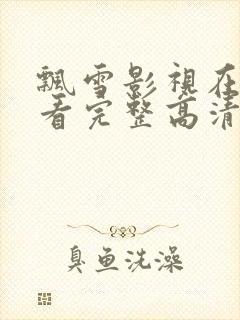 飘雪影視在
看完整高清
臭鱼洗澡